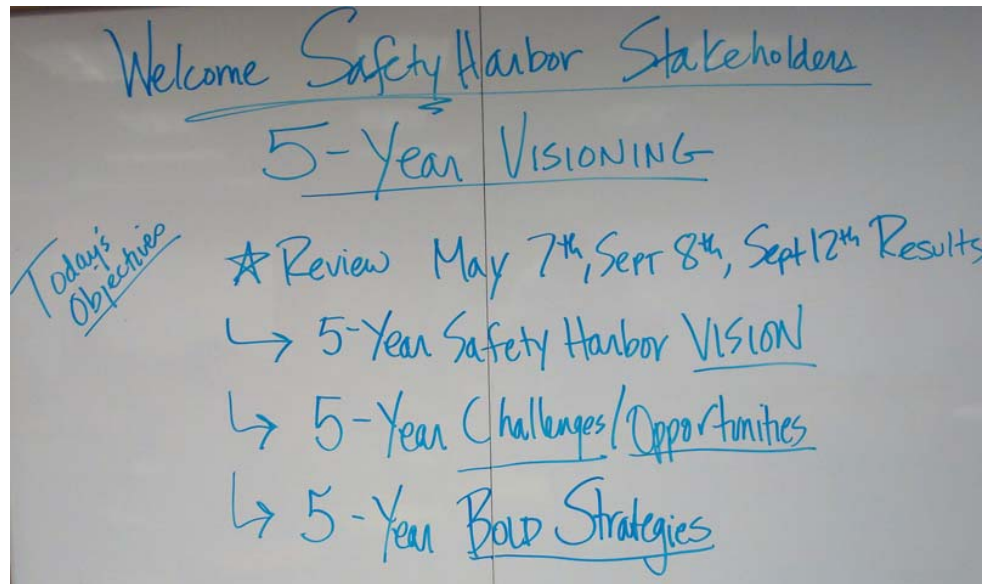 Welcome Safety Harbor Stakeholders
5-Year VISIONING
Today's
Objectives
☆ Review May 7th, Sept 8th, Sept 12th Results
↳ 5-Year Safety Harbor VISION
↳ 5-Year Challenges/Opportunities
↳ 5-Year BOLD Strategies